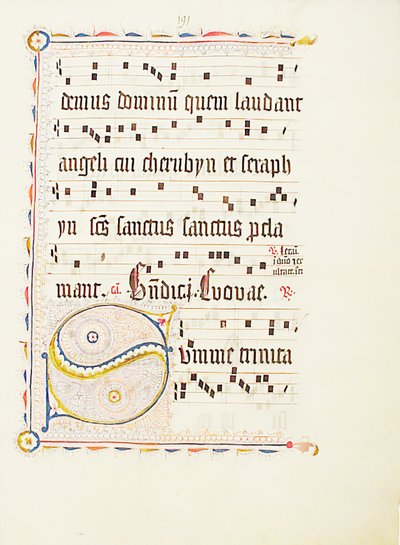 191
demus dominū quem laudant
angeli cui cherubyn et seraph
yn scs̄ sanctus sanctus ꝓcla
mant. ca. Bn̄dicꝫ. Euouae. ℟.
Summe trinita